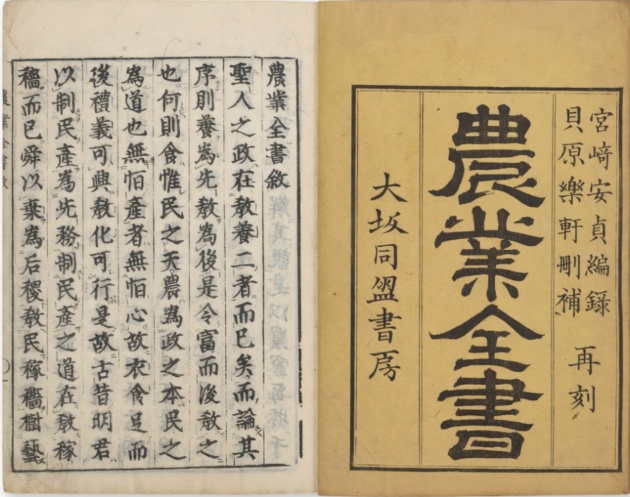 宮﨑安貞編録
貝原樂軒刪補
再刻
農業全書
大坂同盟書房
農業全書敘
聖人之政在教養二者而已矣而論其
序則養為先教為後是令富而後教之
也何則食惟民之天農為政之本民之
為道也無恒產者無恒心故衣食足而
後禮義可興教化可行是故古昔明君
以制民產為先務制民產之道在教稼
穡而已舜以棄為后稷教民稼穡樹藝
農業全書敘